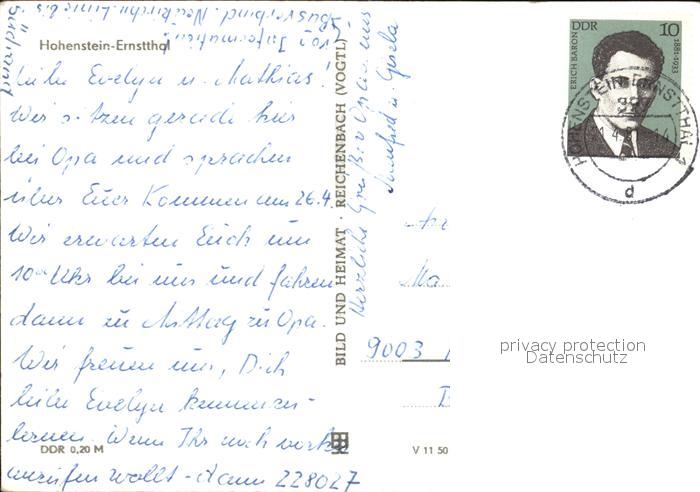 Südring"
zur Information:
Busverbind. Neukirchn. Linie bis
Hohenstein-Ernstthal
Liebe Evelyn u. Mathias!
Wir sitzen gerade hier
bei Opa und sprachen
über Euer Kommen am 26.4.
Wir erwarten Euch um
10°° Uhr bei uns und fahren
dann zu Mittag zu Opa.
Wir freuen uns, Dich
liebe Evelyn kennenzu-
lernen. Wenn Ihr noch vorher
anrufen wollt - dann 228027
Herzliche Grüße v. Opa u. uns
Manfred u. Gisela
DDR 0,20 M
BILD UND HEIMAT · REICHENBACH (VOGTL)
V 11 50
9003
ERICH BARON
DDR
10
1881-1933
HOHENSTEIN-ERNSTTHAL 1
d
privacy protection
Datenschutz